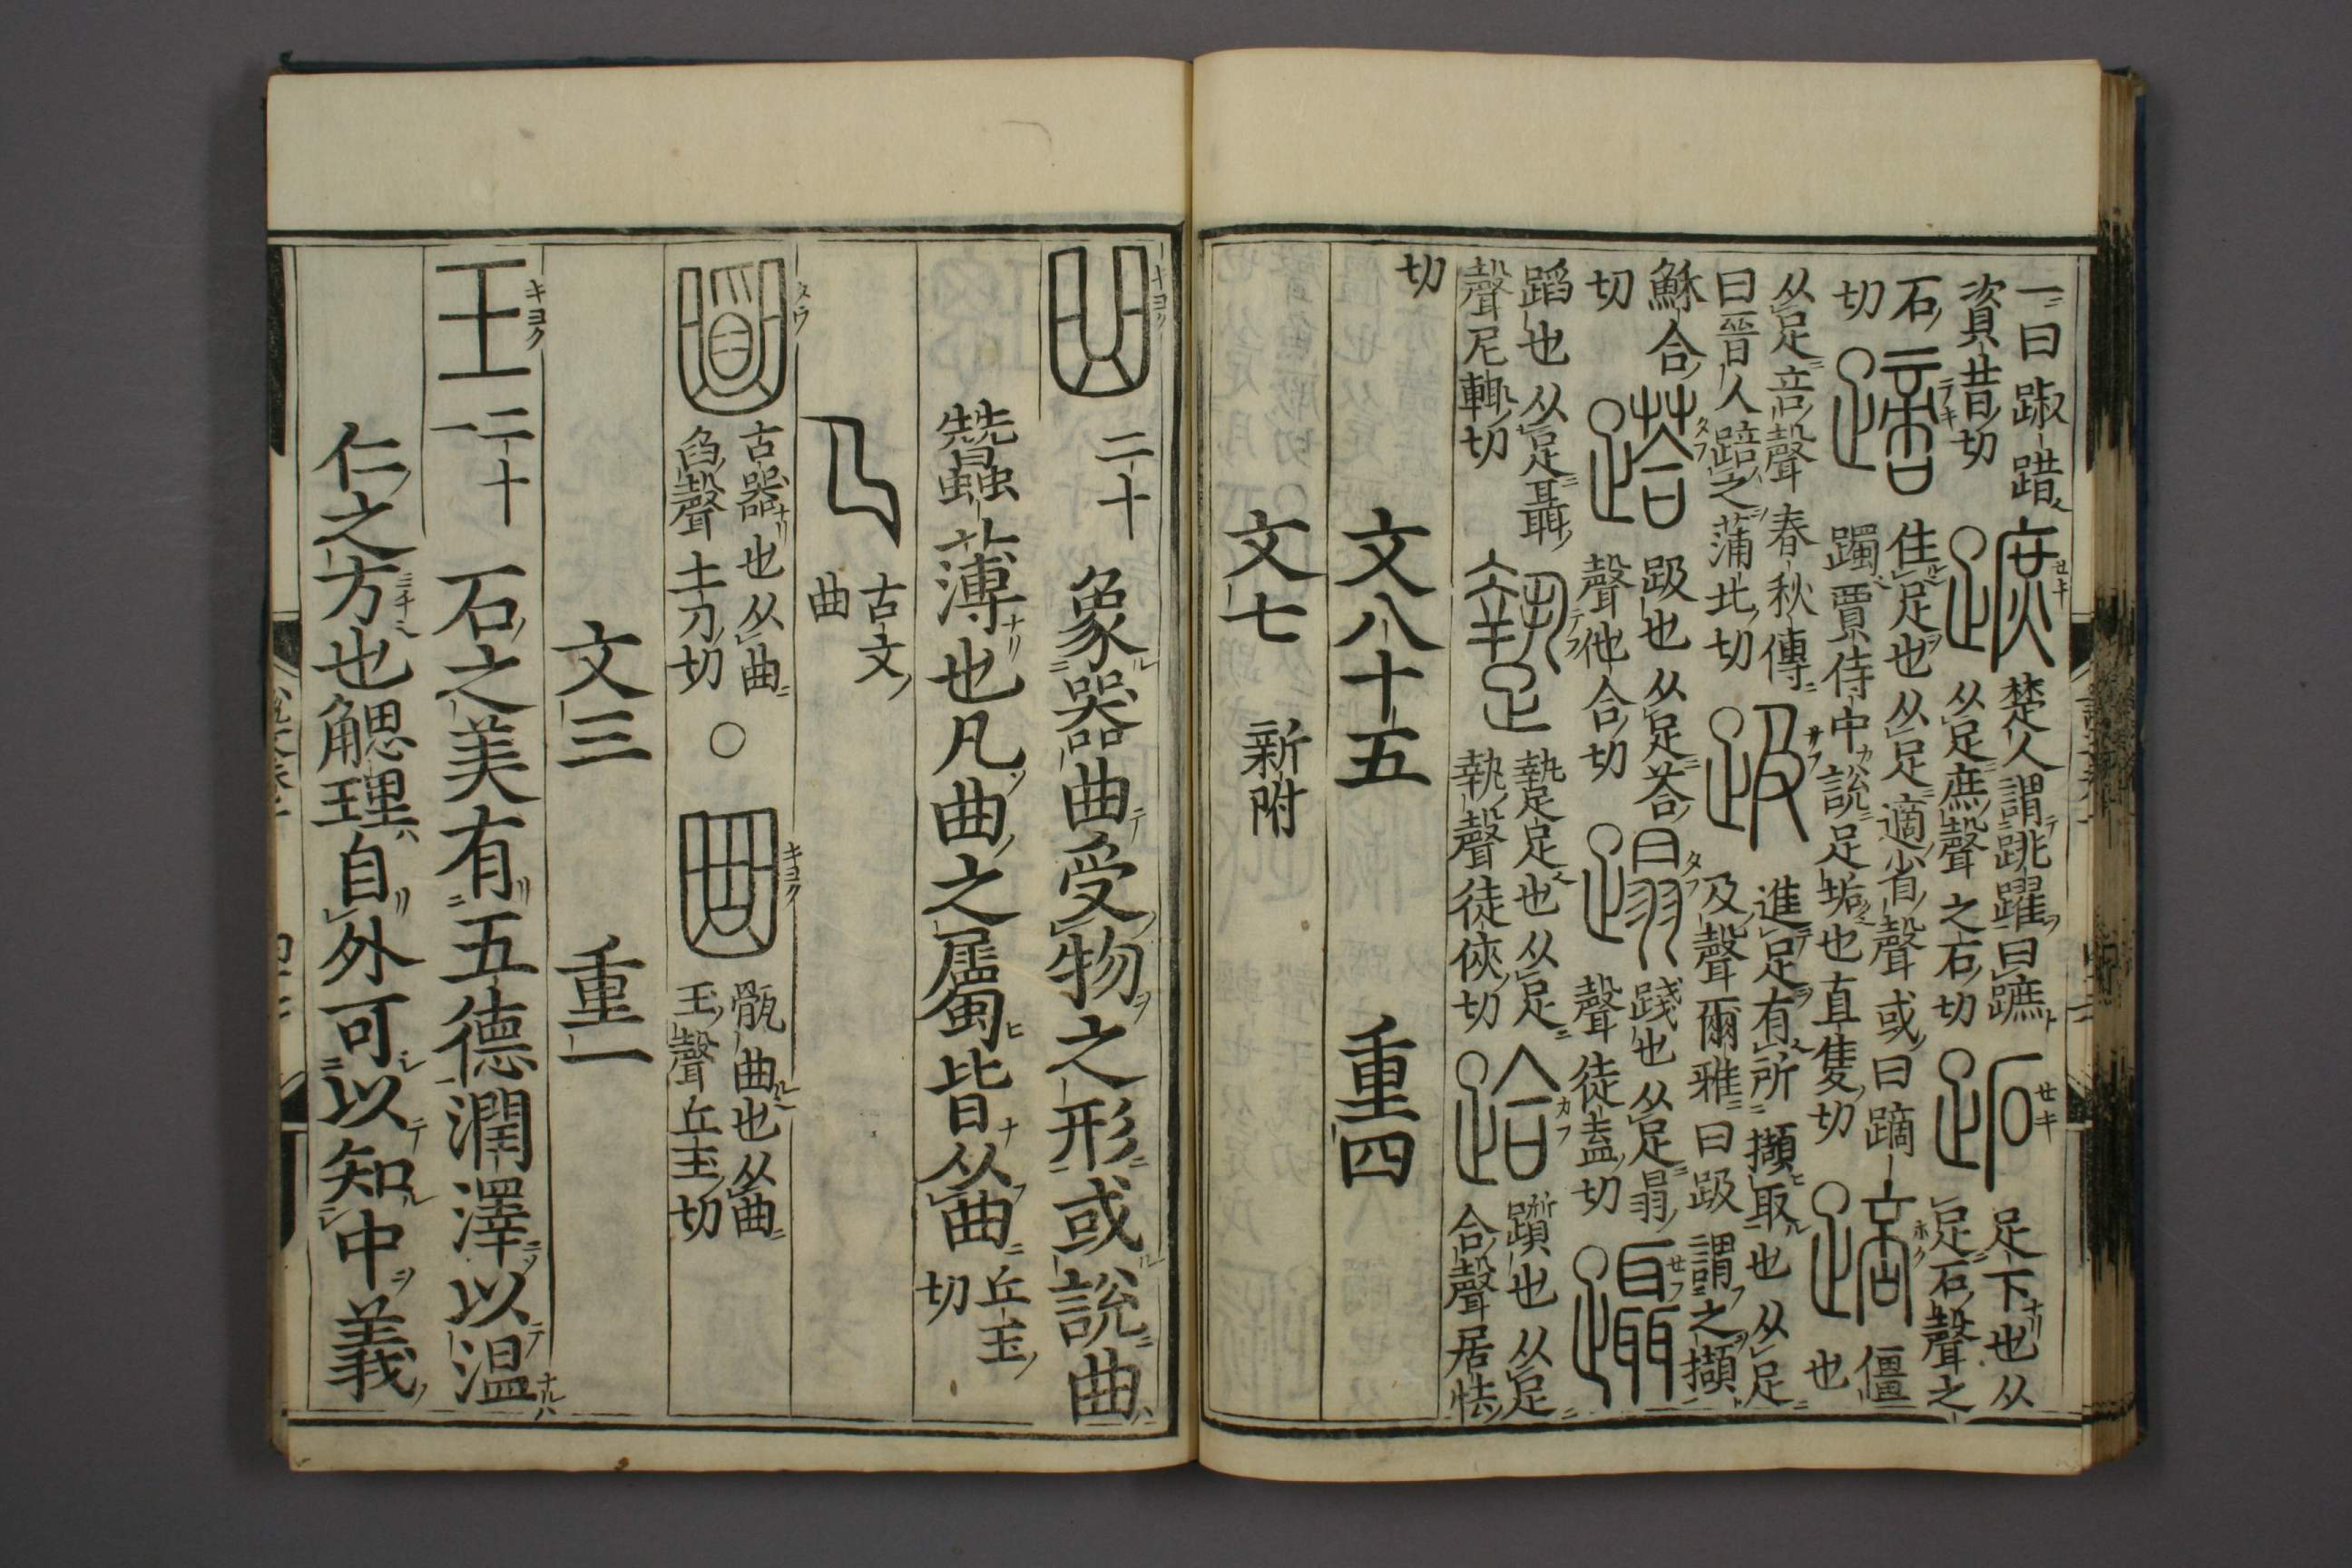 一曰踧踖資昔切 蹠 楚人謂跳躍曰蹠从足庶聲之石切 跖 足下也从足石聲之
石切 蹢 住足也从足適省聲或曰蹢躅賈侍中說足垢也直隻切 踣 僵也
从足咅聲春秋傳曰晉人踣之蒲北切 趿 進足有所擷取也从足及聲爾雅曰趿謂之擷
穌合切 趿也从足荅聲他合切 蹋 踐也从足𦐇聲徒盍切 躡
蹈也从足聶聲尼輒切 墊足也从足執聲徒俠切 跲 躓也从足合聲居怯
切 文八十五 重四
文七 新附
曲 二十 象器曲受物之形或說曲
蠶薄也凡曲之屬皆从曲丘玉切
古文曲
古器也从曲舀聲土刀切 ○ 骫曲也从曲玉聲丘玉切
文三 重一
王 二十一 石之美有五德潤澤以温
仁之方也䚡理自外可以知中義